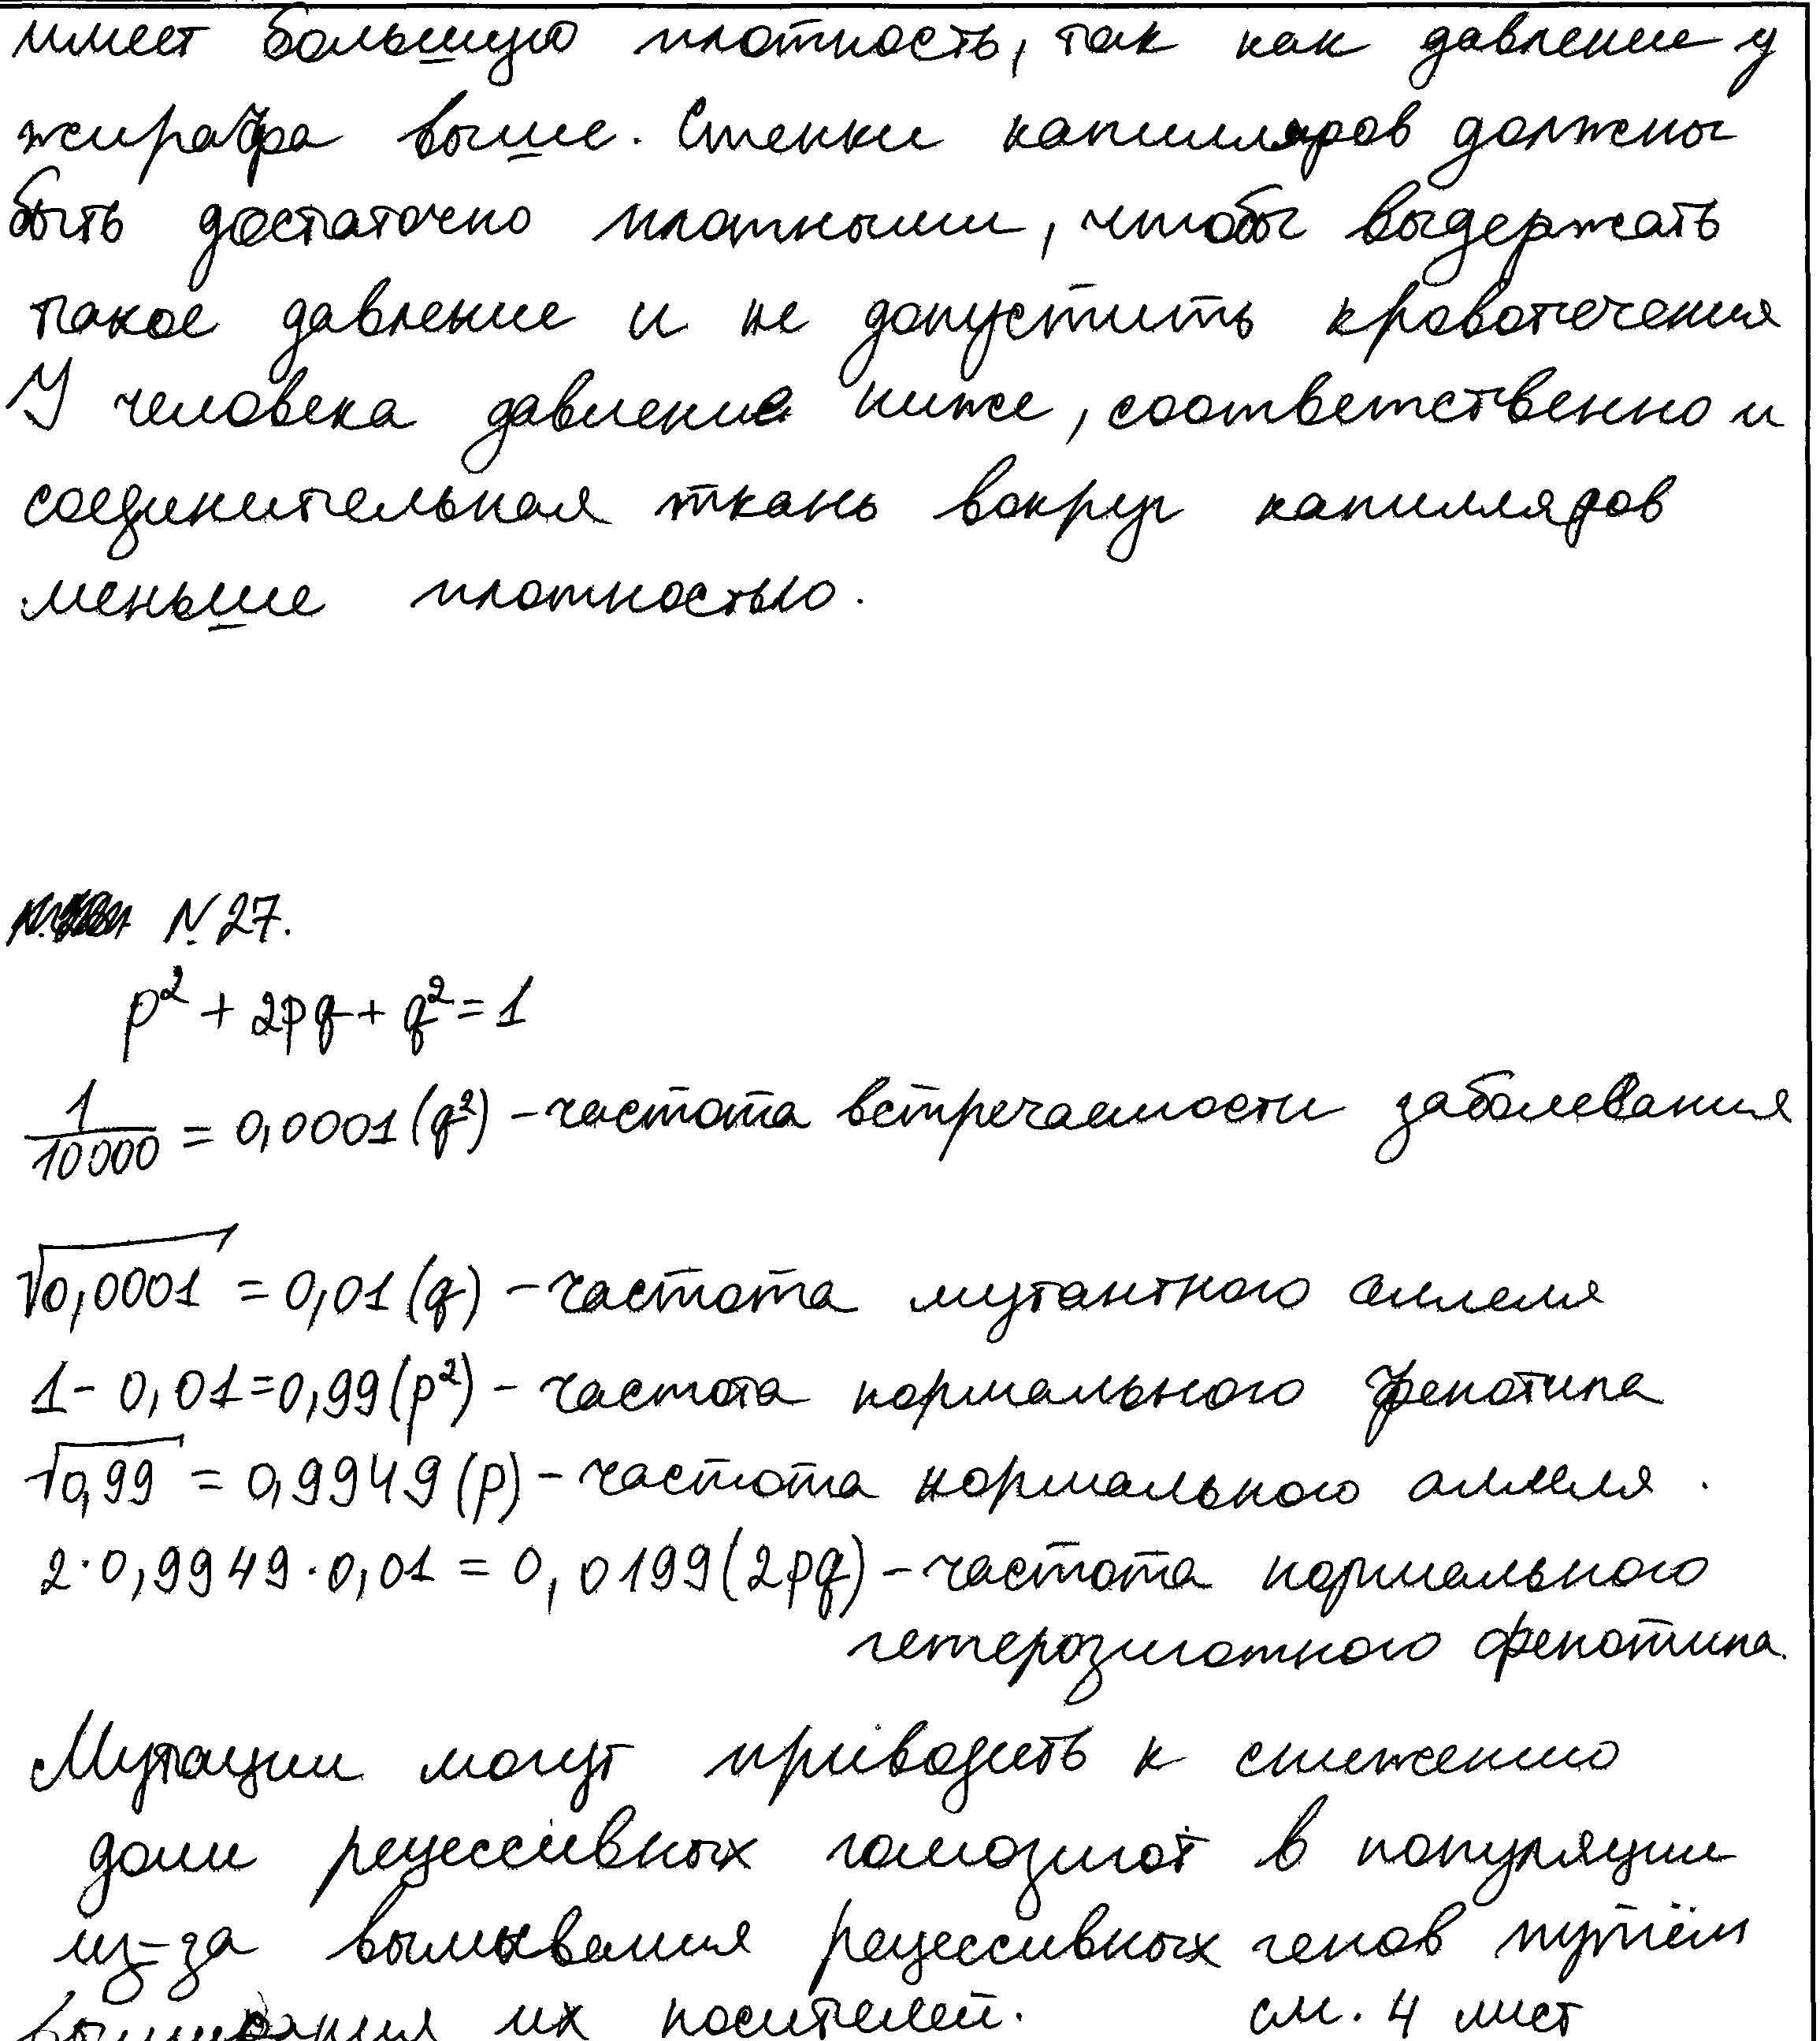 имеет большую плотность, так как давление у
жирафа выше. Стенки капилляров должны
быть достаточно плотными, чтобы выдержать
такое давление и не допустить кровотечения
У человека давление ниже, соответственно и
соединительная ткань вокруг капилляров
меньше плотностью.
N.27.
p² + 2pq + q² = 1
1/10000 = 0,0001 (q²) – частота встречаемости заболевания
√0,0001 = 0,01 (q) – частота мутантного аллеля
1 – 0,01 = 0,99 (p²) – частота нормального фенотипа
√0,99 = 0,9949 (p) – частота нормального аллеля.
2·0,9949·0,01 = 0,0199 (2pq) – частота нормального
гетерозиготного фенотипа.
Мутации могут приводить к снижению
доли рецессивных гомозигот в популяции
из-за вымывания рецессивных генов путём
их носителей. см. 4 лист